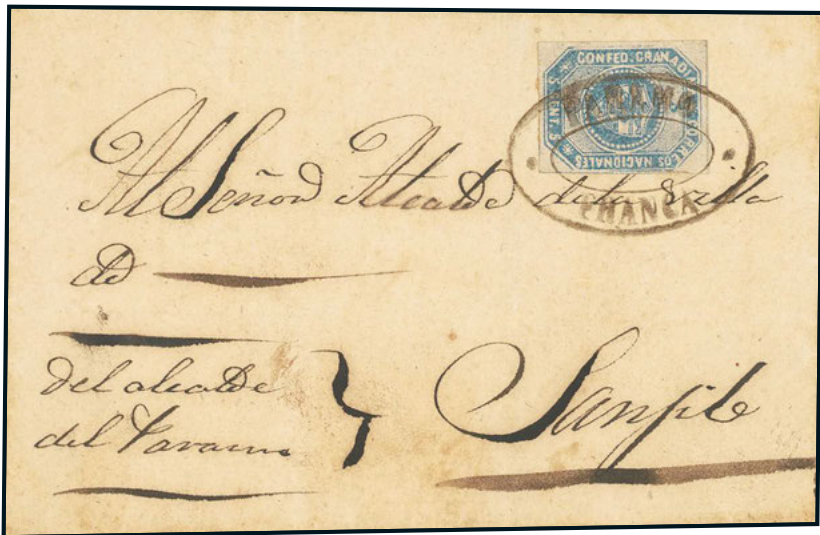 CONFED. GRANADI
CORREOS NACIONALES
5 CENT. 5
FRANCA
Al Señor Alcalde de la Villa
de
del alcalde
del Paramo
Sanjil